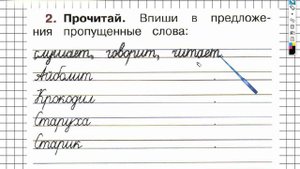 2. Прочитай. Впиши в предложе-
ния пропущенные слова:
слушает, говорит, читает.
Айболит .
Крокодил .
Старуха .
Старик .